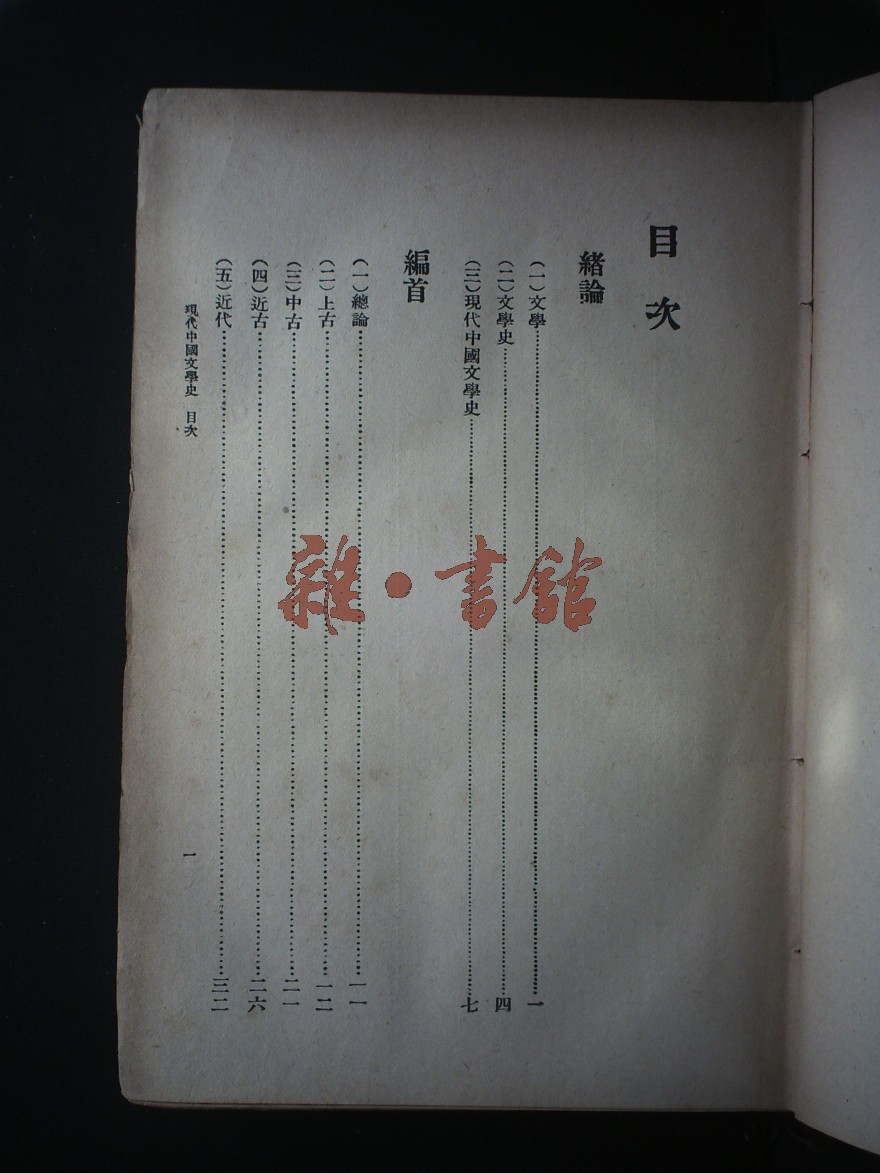 目次
緒論
(一)文學……一
(二)文學史……四
(三)現代中國文學史……七
編首
(一)總論……一一
(二)上古……一二
(三)中古……二一
(四)近古……二六
(五)近代……三二
現代中國文學史 目次
一
雜·書館